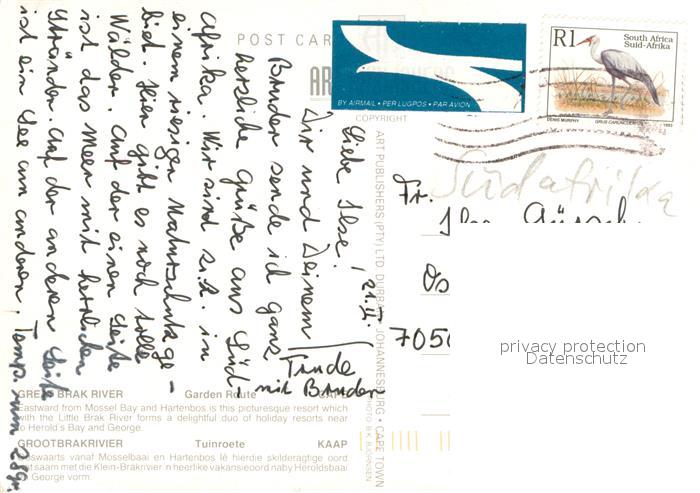 POST CAR
BY AIRMAIL • PER LUGPOS • PAR AVION
COPYRIGHT
R1
South Africa
Suid-Afrika
DENIS MURPHY
1993
ART PUBLISHERS (PTY) LTD DURBAN JOHANNESBURG • CAPE TOWN
PHOTO B.K. BJORNSEN
Liebe Ilse! 21.II.
Dir und Deinem
Bruder sende ich ganz
herzliche Grüße aus Süd-
afrika. Wir sind z.Z. in
einem riesigen Naturschutzge-
biet. Hier gibt es noch tolle
Wälder. Auf der einen Seite
ist das Meer mit herrlichen
Stränden. Auf der anderen Seite
ist ein See am anderen. Temp. um 28gr.
Trude
mit Bruder
Südafrika
Fr.
Os
705
privacy protection
Datenschutz
GREAT BRAK RIVER Garden Route CAPE
Eastward from Mossel Bay and Hartenbos is this picturesque resort which
with the Little Brak River forms a delightful duo of holiday resorts near
to Herold's Bay and George.
GROOTBRAKRIVIER Tuinroete KAAP
Ooswaarts vanaf Mosselbaai en Hartenbos lê hierdie skilderagtige oord
wat saam met die Klein-Brakrivier 'n heerlike vakansieoord naby Heroldsbaai
en George vorm.